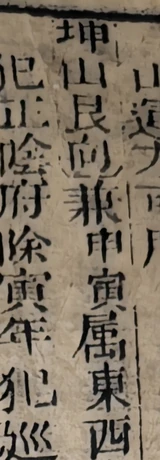 山運
坤山艮向兼申寅属東西
犯正陰府除寅年犯巡